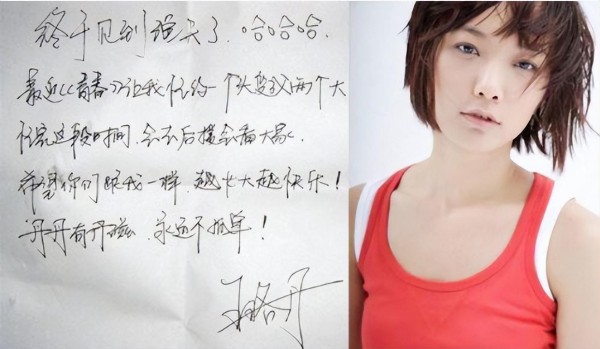 终于见到了.哈哈哈.
最近《青春》让我忙的一个头变两个大
忙完这段时间,会去后援会看大家.
希望你们跟我一样,越长大越快乐!
丹丹有丹滋,永远不孤单!
王珞丹